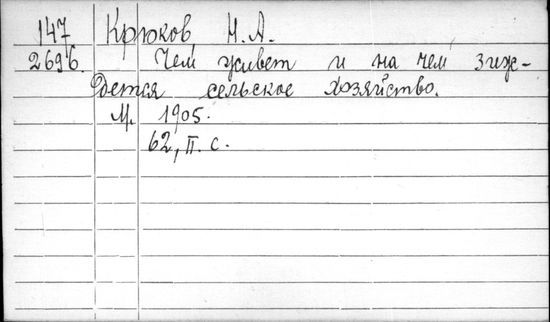 147 Крюков Н. А.
2696. Чем живет и на чем зиж-
дется сельское хозяйство.
М. 1905.
62, II. с.